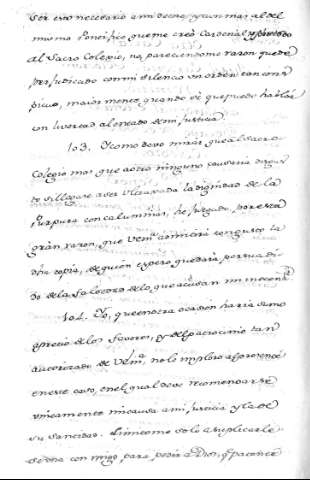 ser esto necesario a mi decoro, y aun mas al del
mismo Pontifice que me creó Cardenal, y potodo
al Sacro Colegio, no pareciendome razon quede
perjudicado con mi silencio un orden tan cons
picuo, maior mente quando sé que puedo hablar
con livertad al onrado de mi justicia
103. Y como devo mirar que al Sacro
Colegio mas que a otro ninguno causaria disgus
to si llegase a ser ultraxada la dignidad de la
Purpura con calumnias, he juzgado, por esta
gran razon, que Vemª admitirá con gusto la
dha copia, de quien espero quedará persuadi
do de la falsedad de lo que acusan mi inocenª
104. Yo, que en otra ocasion haria sumo
aprecio de los favores, y del patrocinio tan
autorizado de Vemª, no lo imploro al presente
en este caso, en el qual deve recomendarse
unicamente mi causa a mi justicia y la de
su Santidad. Limitome solo a suplicarle
se una con migo, para pedir a Dios, q̃ pacience